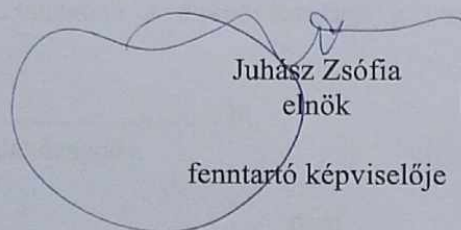 Juhász Zsófia
elnök
fenntartó képviselője